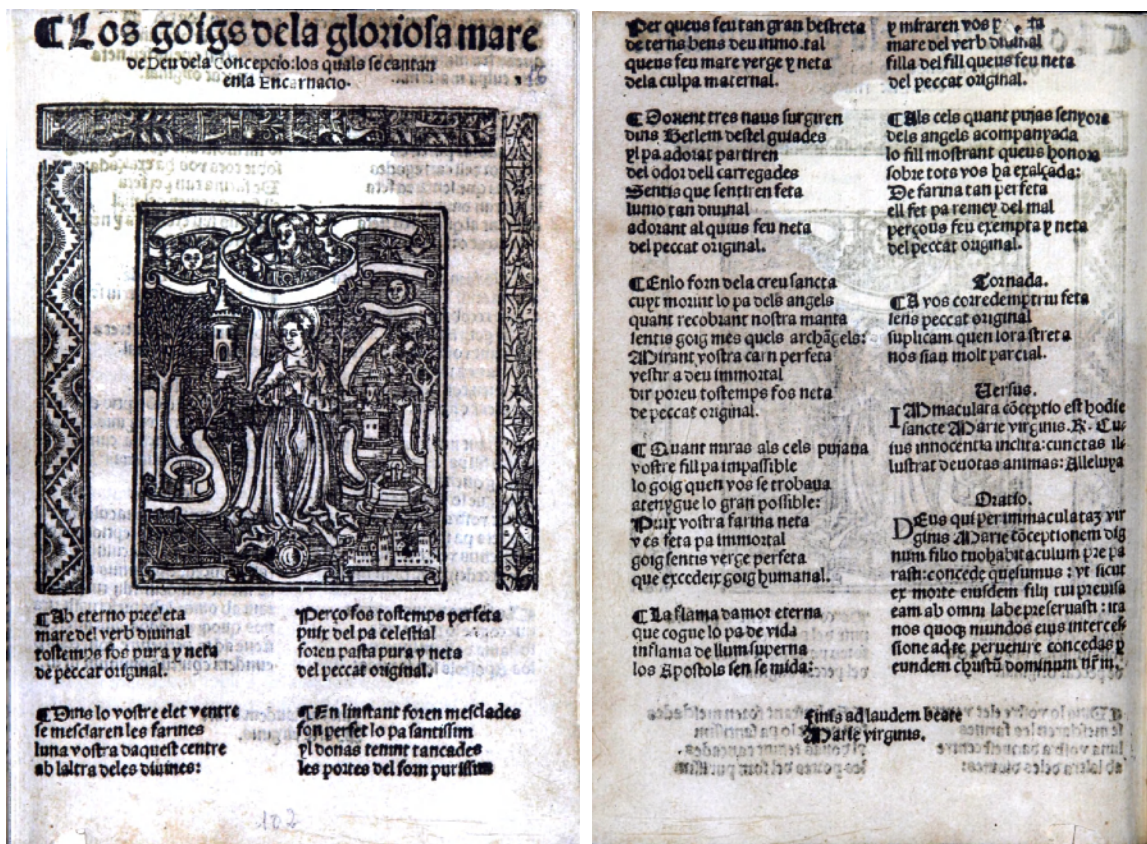 ¶Los goigs dela gloriosa mare
de Deu dela Concepcio: los quals se cantan
enla Encarnacio.
¶Ab eterno pree eta
mare del verb diuinal
tostemps fos pura y neta
de peccat original.
¶Dins lo vostre elet ventre
se mesclaren les farines
luna vostra daquest centre
ab laltra deles diuines:
Perço fos tostemps perfeta
puix del pa celestial
foreu pasta pura y neta
del peccat original.
¶En linstant foren mesclades
fon perfet lo pa santissim
yl donas tenint tancades
les portes del forn purissim
107
Per queus feu tan gran bestreta
de terns bens deu immo tal
queus feu mare verge y neta
dela culpa maternal.
¶Donent tres naus surgiren
dins Betlem destel guiades
yl pa adorat partiren
del odor dell carregades
Sentis que sentiren feta
lunio tan diuinal
adorant al quius feu neta
del peccat original.
¶Enlo forn dela creu sancta
cuyt morint lo pa dels angels
quant recobrant nostra manta
sentis goig mes quels archãgels:
Mirant vostra carn perfeta
vestir a deu immortal
dir poreu tostemps fos neta
de peccat original.
¶Quant miras als cels pujaua
vostre fill pa impassible
lo goig quen vos se trobaua
atenygue lo gran possible:
Puix vostra farina neta
y es feta pa immortal
goig sentis verge perfeta
que excedeix goig humanal.
¶La flama damor eterna
que cogue lo pa de vida
inflama de llum superna
los Apostols sen se mida:
y miraren vos p ta
mare del verb diuinal
filla del fill queus feu neta
del peccat original.
¶Als cels quant pujas senyora
dels angels acompanyada
lo fill mostrant queus honora
sobre tots vos ha exalçada:
De farina tan perfeta
ell fet pa remey del mal
perçous feu exempta y neta
del peccat original.
Tornada.
¶A vos corredemptriu feta
sens peccat original
suplicam quen lora streta
nos siau molt parcial.
Uersus.
IMmaculata cõceptio est hodie
sancte Marie virginis. R. Cu-
ius innocentia inclita: cunctas il-
lustrat deuotas animas: Alleluya
Oratio.
DEus qui per immaculataz vir
ginis Marie cõceptionem dig
num filio tuo habitaculum pre pa
rasti: concede quesumus: vt sicut
ex morte eiusdem filij tui preuisa
eam ab omni labe preseruasti: ita
nos quoq; mundos eius interces
sione ad te peruenire concedas p
eundem christũ dominum nr̃m.
Finis ad laudem beate
Marie virginis.